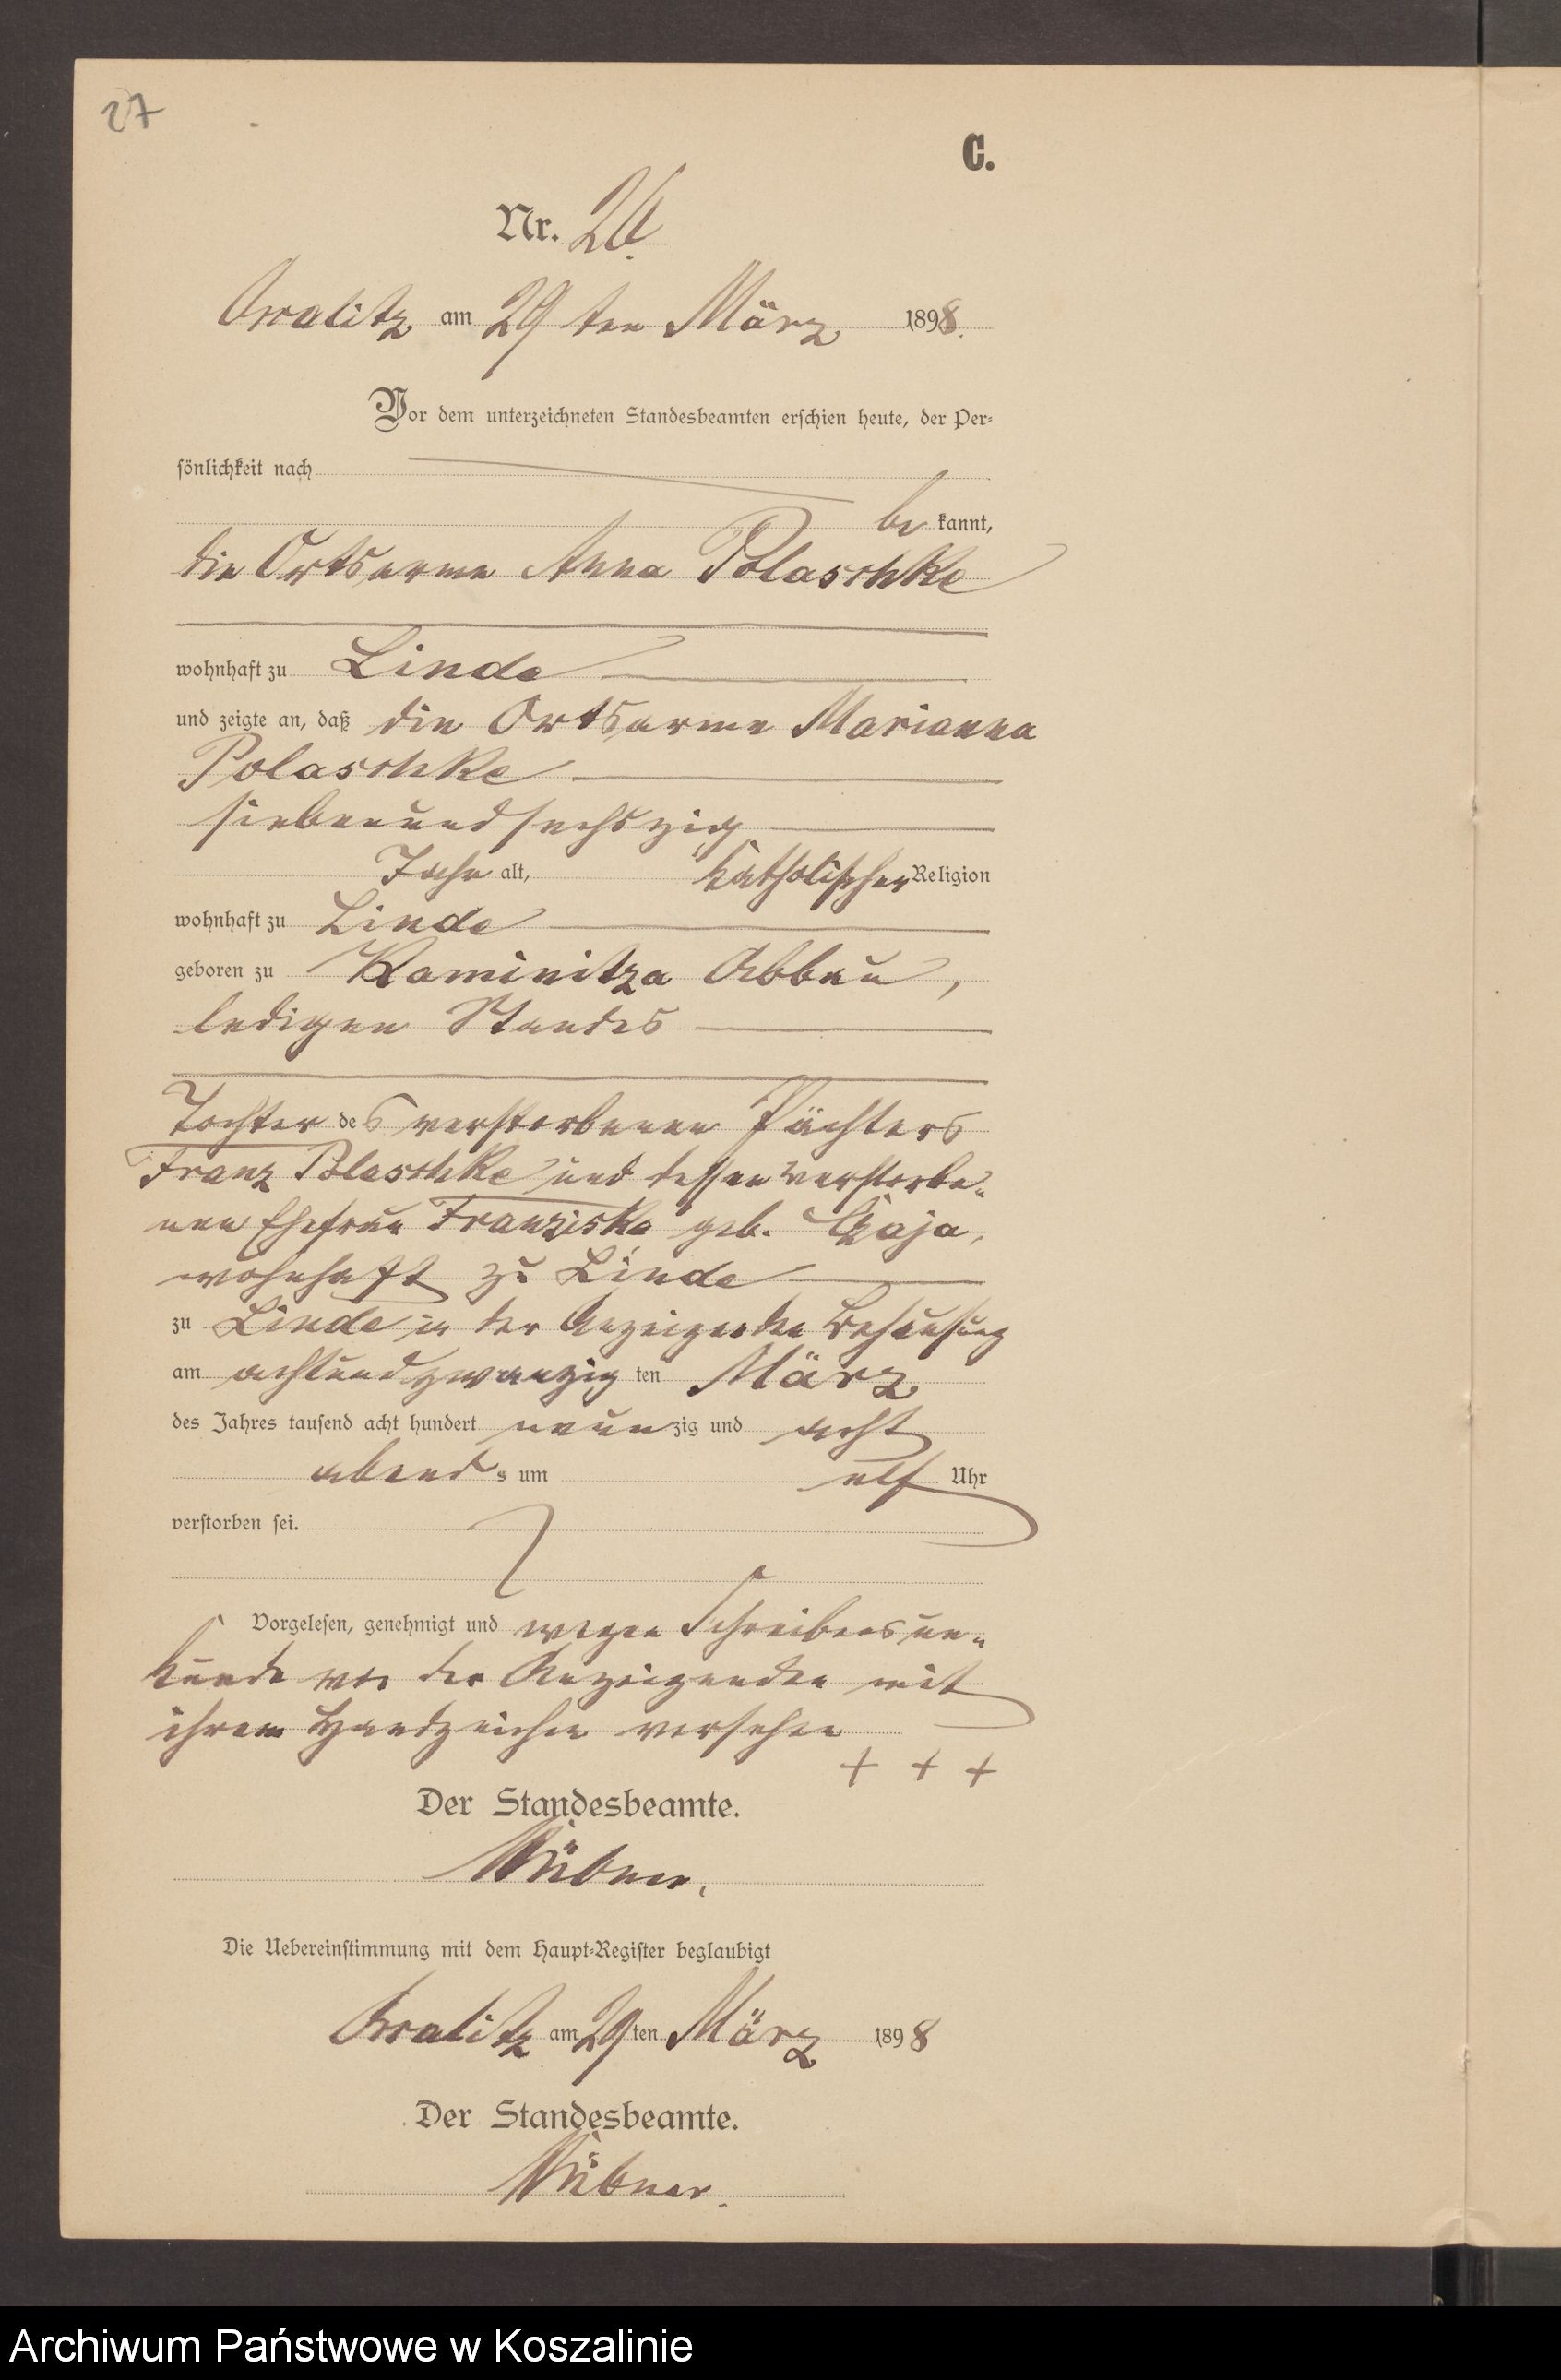 27
C.
Nr. 26.
Ossalitz am 29 ten März 1898.
Vor dem unterzeichneten Standesbeamten erschien heute, der Per-
sönlichkeit nach
be kannt,
die Ortsarme Anna Polaschke
wohnhaft zu Linde
und zeigte an, daß die Ortsarme Marianna
Polaschke
siebenundsechszig
Jahr alt, katholischer Religion
wohnhaft zu Linde
geboren zu Kaminitza Abbau,
ledigen Standes
Tochter des verstorbenen Pächters
Franz Polaschke und dessen verstorbe-
nen Ehefrau Franziska geb. Czaja,
wohnhaft zu Linde
zu Linde in der Anzeigenden Behausung
am achtundzwanzig ten März
des Jahres tausend acht hundert neunzig und acht
abend s um elf Uhr
verstorben sei.
Vorgelesen, genehmigt und wegen Schreibensun-
kunde von der Anzeigenden mit
ihrem Handzeichen versehen
+ + +
Der Standesbeamte.
Die Uebereinstimmung mit dem Haupt-Register beglaubigt
Ossalitz am 29 ten März 1898
Der Standesbeamte.
Archiwum Państwowe w Koszalinie